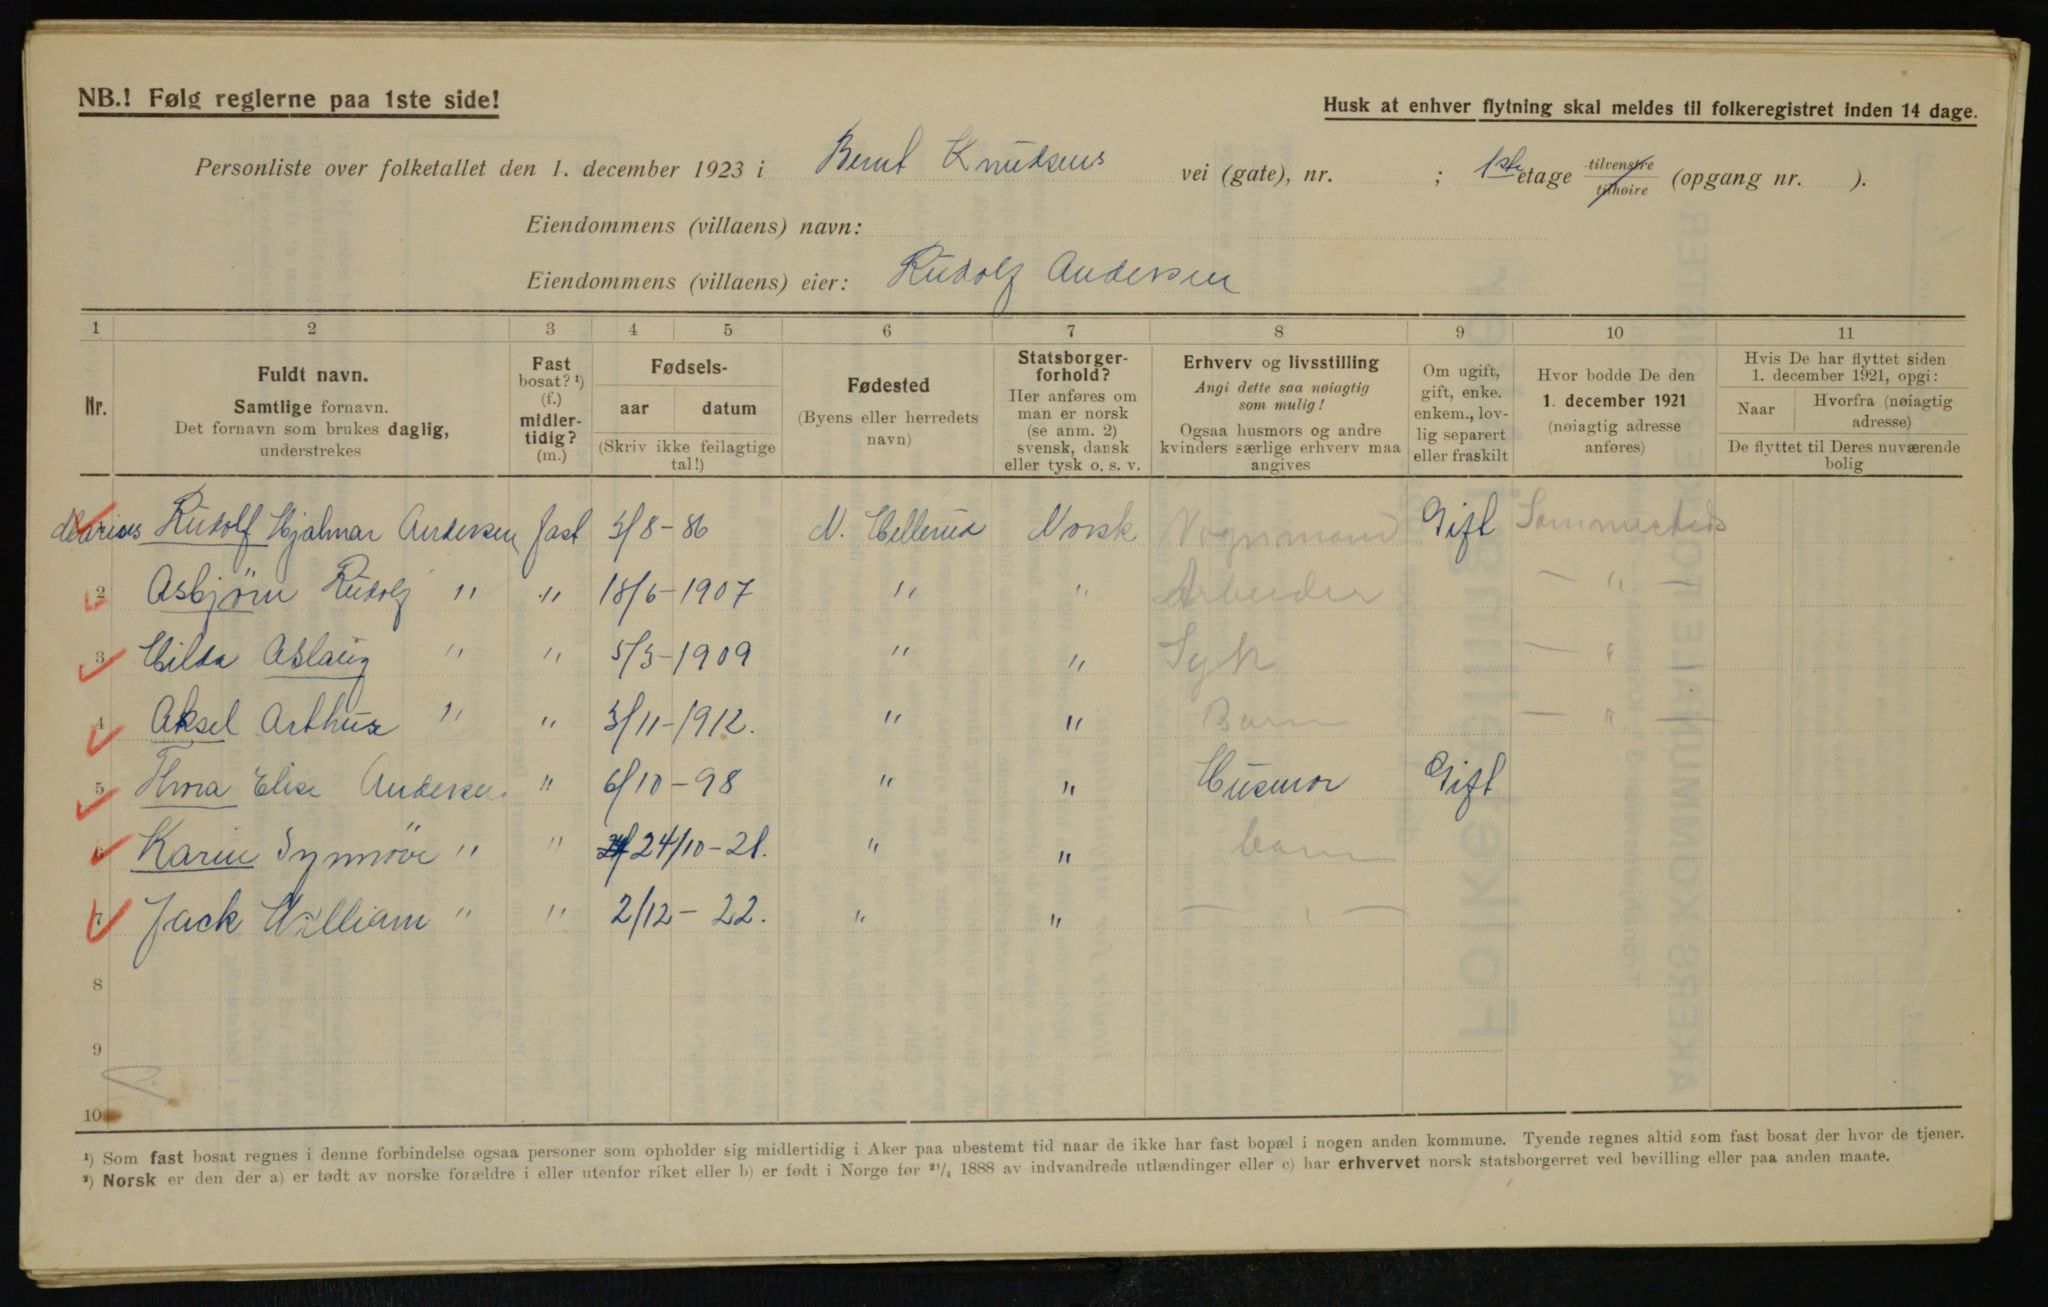 NB.! Følg reglerne paa 1ste side!
Husk at enhver flytning skal meldes til folkeregistret inden 14 dage.
Personliste over folketallet den 1. december 1923 i Bernt Knudsens vei (gate), nr. ; 1ste etage tilvenstre / tilhøire (opgang nr. ).
Eiendommens (villaens) navn:
Eiendommens (villaens) eier: Rudolf Andersen
1 2 3 4 5 6 7 8 9 10 11
Nr.
Fuldt navn.
Samtlige fornavn.
Det fornavn som brukes daglig,
understrekes
Fast
bosat? ¹)
(f.)
midler-
tidig?
(m.)
Fødsels-
aar datum
(Skriv ikke feilagtige
tal!)
Fødested
(Byens eller herredets
navn)
Statsborger-
forhold?
Her anføres om
man er norsk
(se anm. 2)
svensk, dansk
eller tysk o. s. v.
Erhverv og livsstilling
Angi dette saa nøiagtig
som mulig!
Ogsaa husmors og andre
kvinders særlige erhverv maa
angives
Om ugift,
gift, enke.
enkem., lov-
lig separert
eller fraskilt
Hvor bodde De den
1. december 1921
(nøiagtig adresse
anføres)
Hvis De har flyttet siden
1. december 1921, opgi:
Naar
Hvorfra (nøiagtig
adresse)
De flyttet til Deres nuværende
bolig
Marius Rudolf Hjalmar Andersen fast 3/8-86 N. Hellerud Norsk Vognmand Gift Sommersteds
2 Asbjörn Rudolf " " 18/6-1907 " " Arbeider — " —
3 Hilda Aslaug " " 5/3-1909 " " Syk — " —
4 Aksel Arthur " " 3/11-1912. " " Barn — " —
5 Thora Elise Andersen " 6/10-98 " " Husmor Gift
6 Karin Synnöve " " 24/10-21. " " barn
7 Jack William " " 2/12-22. " " — " —
8
9
10
¹) Som fast bosat regnes i denne forbindelse ogsaa personer som opholder sig midlertidig i Aker paa ubestemt tid naar de ikke har fast bopæl i nogen anden kommune. Tyende regnes altid som fast bosat der hvor de tjener.
²) Norsk er den der a) er født av norske forældre i eller utenfor riket eller b) er født i Norge før ²¹/₄ 1888 av indvandrede utlændinger eller c) har erhvervet norsk statsborgerret ved bevilling eller paa anden maate.